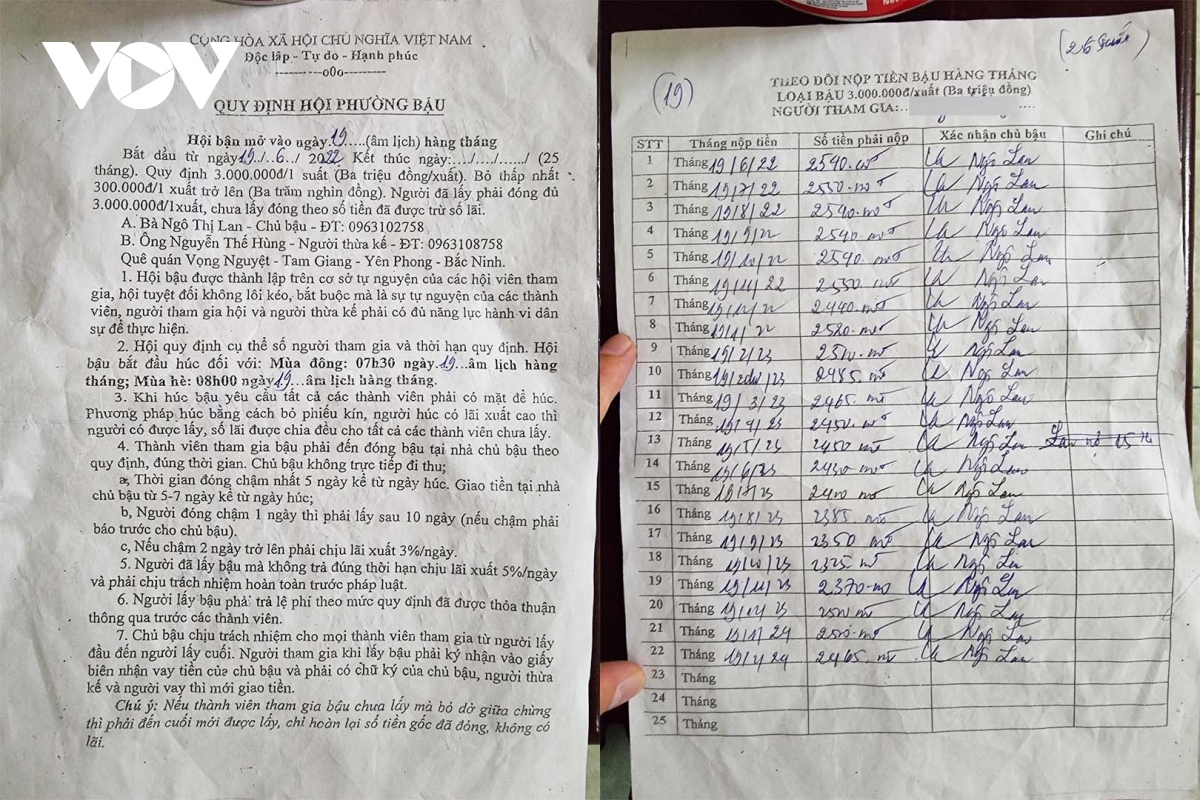 VOV
CỘNG HÒA XÃ HỘI CHỦ NGHĨA VIỆT NAM
Độc lập - Tự do - Hạnh phúc
--------o0o--------
QUY ĐỊNH HỘI PHƯỜNG BẬU
Hội bận mở vào ngày 19.....(âm lịch) hàng tháng
Bắt đầu từ ngày 19./..6../ 2022 Kết thúc ngày:..../..../....../ (25
tháng). Quy định 3.000.000đ/1 suất (Ba triệu đồng/xuất). Bỏ thấp nhất
300.000đ/1 xuất trở lên (Ba trăm nghìn đồng). Người đã lấy phải đóng đủ
3.000.000đ/1xuất, chưa lấy đóng theo số tiền đã được trừ số lãi.
A. Bà Ngô Thị Lan - Chủ bậu - ĐT: 0963102758
B. Ông Nguyễn Thế Hùng - Người thừa kế - ĐT: 0963108758
Quê quán Vọng Nguyệt - Tam Giang - Yên Phong - Bắc Ninh.
1. Hội bậu được thành lập trên cơ sở tự nguyện của các hội viên tham
gia, hội tuyệt đối không lôi kéo, bắt buộc mà là sự tự nguyện của các thành
viên, người tham gia hội và người thừa kế phải có đủ năng lực hành vi dân
sự để thực hiện.
2. Hội quy định cụ thể số người tham gia và thời hạn quy định. Hội
bậu bắt đầu húc đối với: Mùa đông: 07h30 ngày.19...âm lịch hàng
tháng; Mùa hè: 08h00 ngày 19...âm lịch hàng tháng.
3. Khi húc bậu yêu cầu tất cả các thành viên phải có mặt để húc.
Phương pháp húc bằng cách bỏ phiếu kín, người húc có lãi xuất cao thì
người có được lấy, số lãi được chia đều cho tất cả các thành viên chưa lấy.
4. Thành viên tham gia bậu phải đến đóng bậu tại nhà chủ bậu theo
quy định, đúng thời gian. Chủ bậu không trực tiếp đi thu;
a, Thời gian đóng chậm nhất 5 ngày kể từ ngày húc. Giao tiền tại nhà
chủ bậu từ 5-7 ngày kể từ ngày húc;
b, Người đóng chậm 1 ngày thì phải lấy sau 10 ngày (nếu chậm phải
báo trước cho chủ bậu).
c, Nếu chậm 2 ngày trở lên phải chịu lãi xuất 3%/ngày.
5. Người đã lấy bậu mà không trả đúng thời hạn chịu lãi xuất 5%/ngày
và phải chịu trách nhiệm hoàn toàn trước pháp luật.
6. Người lấy bậu phải trả lệ phí theo mức quy định đã được thỏa thuận
thông qua trước các thành viên.
7. Chủ bậu chịu trách nhiệm cho mọi thành viên tham gia từ người lấy
đầu đến người lấy cuối. Người tham gia khi lấy bậu phải ký nhận vào giấy
biên nhận vay tiền của chủ bậu và phải có chữ ký của chủ bậu, người thừa
kế và người vay thì mới giao tiền.
Chú ý: Nếu thành viên tham gia bậu chưa lấy mà bỏ dở giữa chừng
thì phải đến cuối mới được lấy, chỉ hoàn lại số tiền gốc đã đóng, không có
lãi.
(19)
THEO DÕI NỘP TIỀN BẬU HÀNG THÁNG
LOẠI BẬU 3.000.000đ/xuất (Ba triệu đồng)
NGƯỜI THAM GIA:..
STT Tháng nộp tiền Số tiền phải nộp Xác nhận chủ bậu Ghi chú
1 Tháng 19/6/22 2540 Ngô Lan
2 Tháng 19/7/22 2550 Ngô Lan
3 Tháng 19/8/22 2540 Ngô Lan
4 Tháng 19/9/22 2540 Ngô Lan
5 Tháng 19/10/22 2540 Ngô Lan
6 Tháng 19/11/22 2530 Ngô Lan
7 Tháng 19/12/22 2440 Ngô Lan
8 Tháng 19/1/22 2580 Ngô Lan
9 Tháng 19/2/23 Ngô Lan
10 Tháng 2485 Ngô Lan
11 Tháng 19/3/23 2465 Ngô Lan
12 Tháng 19/4/23 2450 Ngô Lan
13 Tháng 19/5/23 2450 Ngô Lan
14 Tháng 19/6/23 2430 Ngô Lan
15 Tháng 19/7/23 2400 Ngô Lan
16 Tháng 19/8/23 2385 Ngô Lan
17 Tháng 19/9/23 2350 Ngô Lan
18 Tháng 19/10/23 2325 Ngô Lan
19 Tháng 19/11/23 2370 Ngô Lan
20 Tháng 19/12/23 Ngô Lan
21 Tháng 19/1/24 Ngô Lan
22 Tháng 19/2/24 2465 Ngô Lan
23 Tháng
24 Tháng
25 Tháng